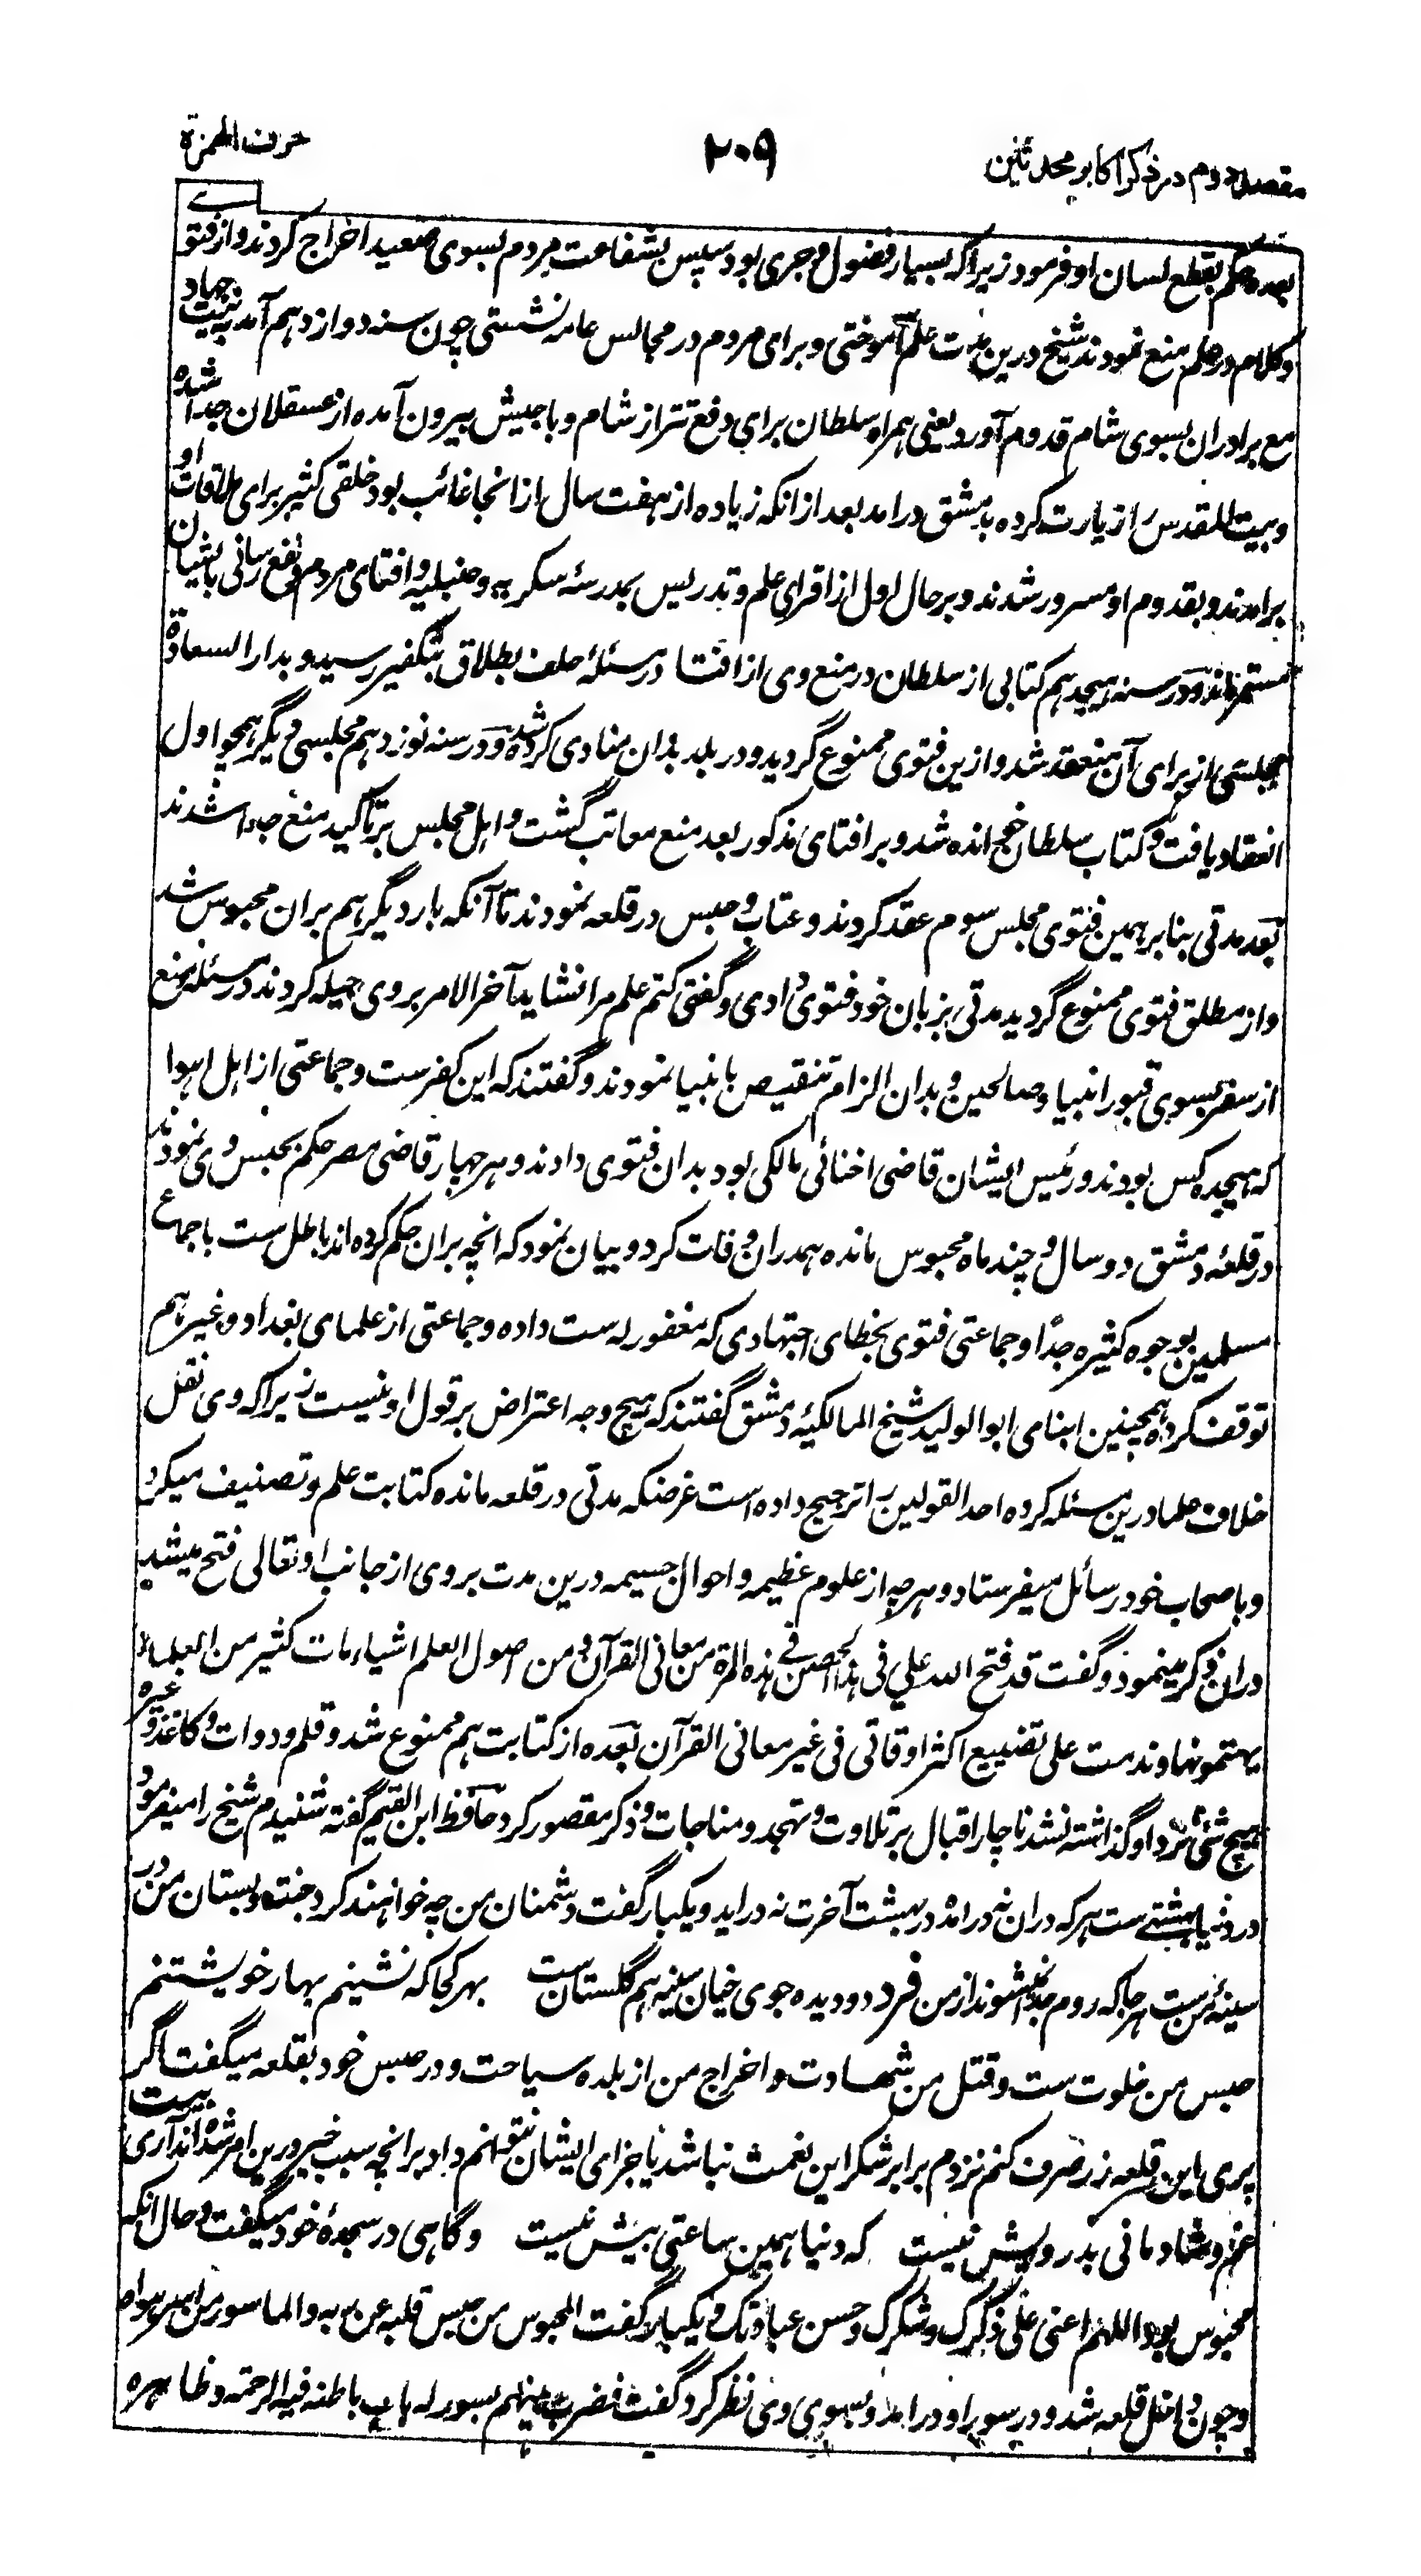 مقصد دوم در ذکر اکابر محدثین ۲۰۹ حرف الهمزة
بعده حکم بقطع لسان او فرمود زیراکه بسیار فضول و جری بود سپس بشفاعت مردم بسوی صعید اخراج کردند و از فتوے
و کلام در علم منع نمودند شیخ درین مدت علم آموختی و برای مردم در مجالس عامه نشستی چون سنه دوازدهم آمد به نیت جهاد
مع برادران بسوی شام قدوم آورد یعنی همراه سلطان برای دفع تتر از شام و با جیش بیرون آمده از عسقلان جدا شده
و بیت المقدس را زیارت کرده بدمشق درامد بعد ازانکه زیاده از هفت سال ازانجا غائب بود خلقی کثیر برای ملاقات او
برامدند و بقدوم او مسرور شدند و بر حال اول از اقرای علم و تدریس بمدرسهٔ سکریه و حنبلیه و افتای مردم و نفع رسانی بایشان
مستمر ماند و در سنه هیجدهم کتابی از سلطان در منع وی از افتا در مسئلهٔ حلف بطلاق بتکفیر رسید و بدار السعادة
مجلسی از برای آن منعقد شد و ازین فتوی ممنوع گردید و در بلد بدان منادی کرده شد و در سنه نوزدهم مجلسی دیگر همچو اول
انعقاد یافت و کتاب سلطان خوانده شد و بر افتای مذکور بعد منع معاتب گشت و اهل مجلس بر تاکید منع جدا شدند
بعد مدتی بنابر همین فتوی مجلس سوم عقد کردند و عتاب و حبس در قلعه نمودند تا آنکه بار دیگر هم بران محبوس شد
و از مطلق فتوی ممنوع گردید مدتی بزبان خود فتوی دادی و گفتی کتم علم مرا نشاید آخر الامر بروی حیله کردند در مسئله منع
از سفر بسوی قبور انبیا و صالحین و بدان الزام تنقیص بانبیا نمودند و گفتند که این کفرست و جماعتی از اهل اهوا
که هیجده کس بودند و رئیس ایشان قاضی اخنائی مالکی بود بدان فتوی دادند و هر چهار قاضی مصر حکم بحبس وی نمودند
در قلعهٔ دمشق دو سال و چند ماه محبوس مانده همدران وفات کرد و بیان نمود که انچه بران حکم کرده اند باطل ست باجماع
مسلمین بوجوه کثیره جدًا و جماعتی فتوی بخطای اجتهادی که مغفور له ست داده و جماعتی از علمای بغداد و غیرهم
توقف کرده همچنین ابنای ابو الولید شیخ المالکیهٔ دمشق گفتند که هیچ وجه اعتراض بر قول او نیست زیراکه وی نقل
خلاف علما درین مسئله کرده احد القولین را ترجیح داده است غرضکه مدتی در قلعه مانده کتابت علم و تصنیف میکرد
و باصحاب خود رسائل میفرستاد و هرچه از علوم عظیمه و احوال جسیمه درین مدت بروی از جانب او تعالی فتح میشد
دران ذکر مینمود و گفت قد فتح الله علی فی هذا الحصن فی هذه المرة من معانی القرآن و من اصول العلم اشیاء مات کثیر من العلماء
یتمنونها و ندمت علی تضییع اکثر اوقاتی فی غیر معانی القرآن بعده از کتابت هم ممنوع شد و قلم و دوات و کاغذ و غیره
هیچ شئ نزد او گذاشته نشد ناچار اقبال بر تلاوت و تهجد و مناجات و ذکر مقصور کرد حافظ ابن القیم گفته شنیدم شیخ را میفرمود
در دنیا بهشتے ست هر که دران نه درامد در بهشت آخرت نه دراید و یکبار گفت دشمنان من چه خواهند کرد جنت و بستان من در
سینهٔ من ست هر جا که روم جدا نمیشوند از من فرد دو دیده جوی خیان سینه هم گلستان ست بهر کجا که نشینم بهار خویشتنم
حبس من خلوت ست و قتل من شهادت و اخراج من از بلده سیاحت و در حبس خود بقلعه میگفت اگر
پری این قلعه زر صرف کنم نزدم برابر شکر این نعمت نباشد یا جزای ایشان نتوانم داد بر انچه سبب خیر درین امر شده اند آری بیت
غم و شادمانی بدرویش نیست که دنیا همین ساعتی بیش نیست و گاهی در سجدهٔ خود میگفت و حال انکه
محبوس بود اللهم اعنی علی ذکرک و شکرک و حسن عبادتک و یکبار گفت المحبوس من حبس قلبه عن ربه و الماسور من اسره هواه
و چون داخل قلعه شد و در سور او درامد و بسوی وی نظر کرد گفت فضرب بینهم بسور له باب باطنه فیه الرحمة و ظاهره